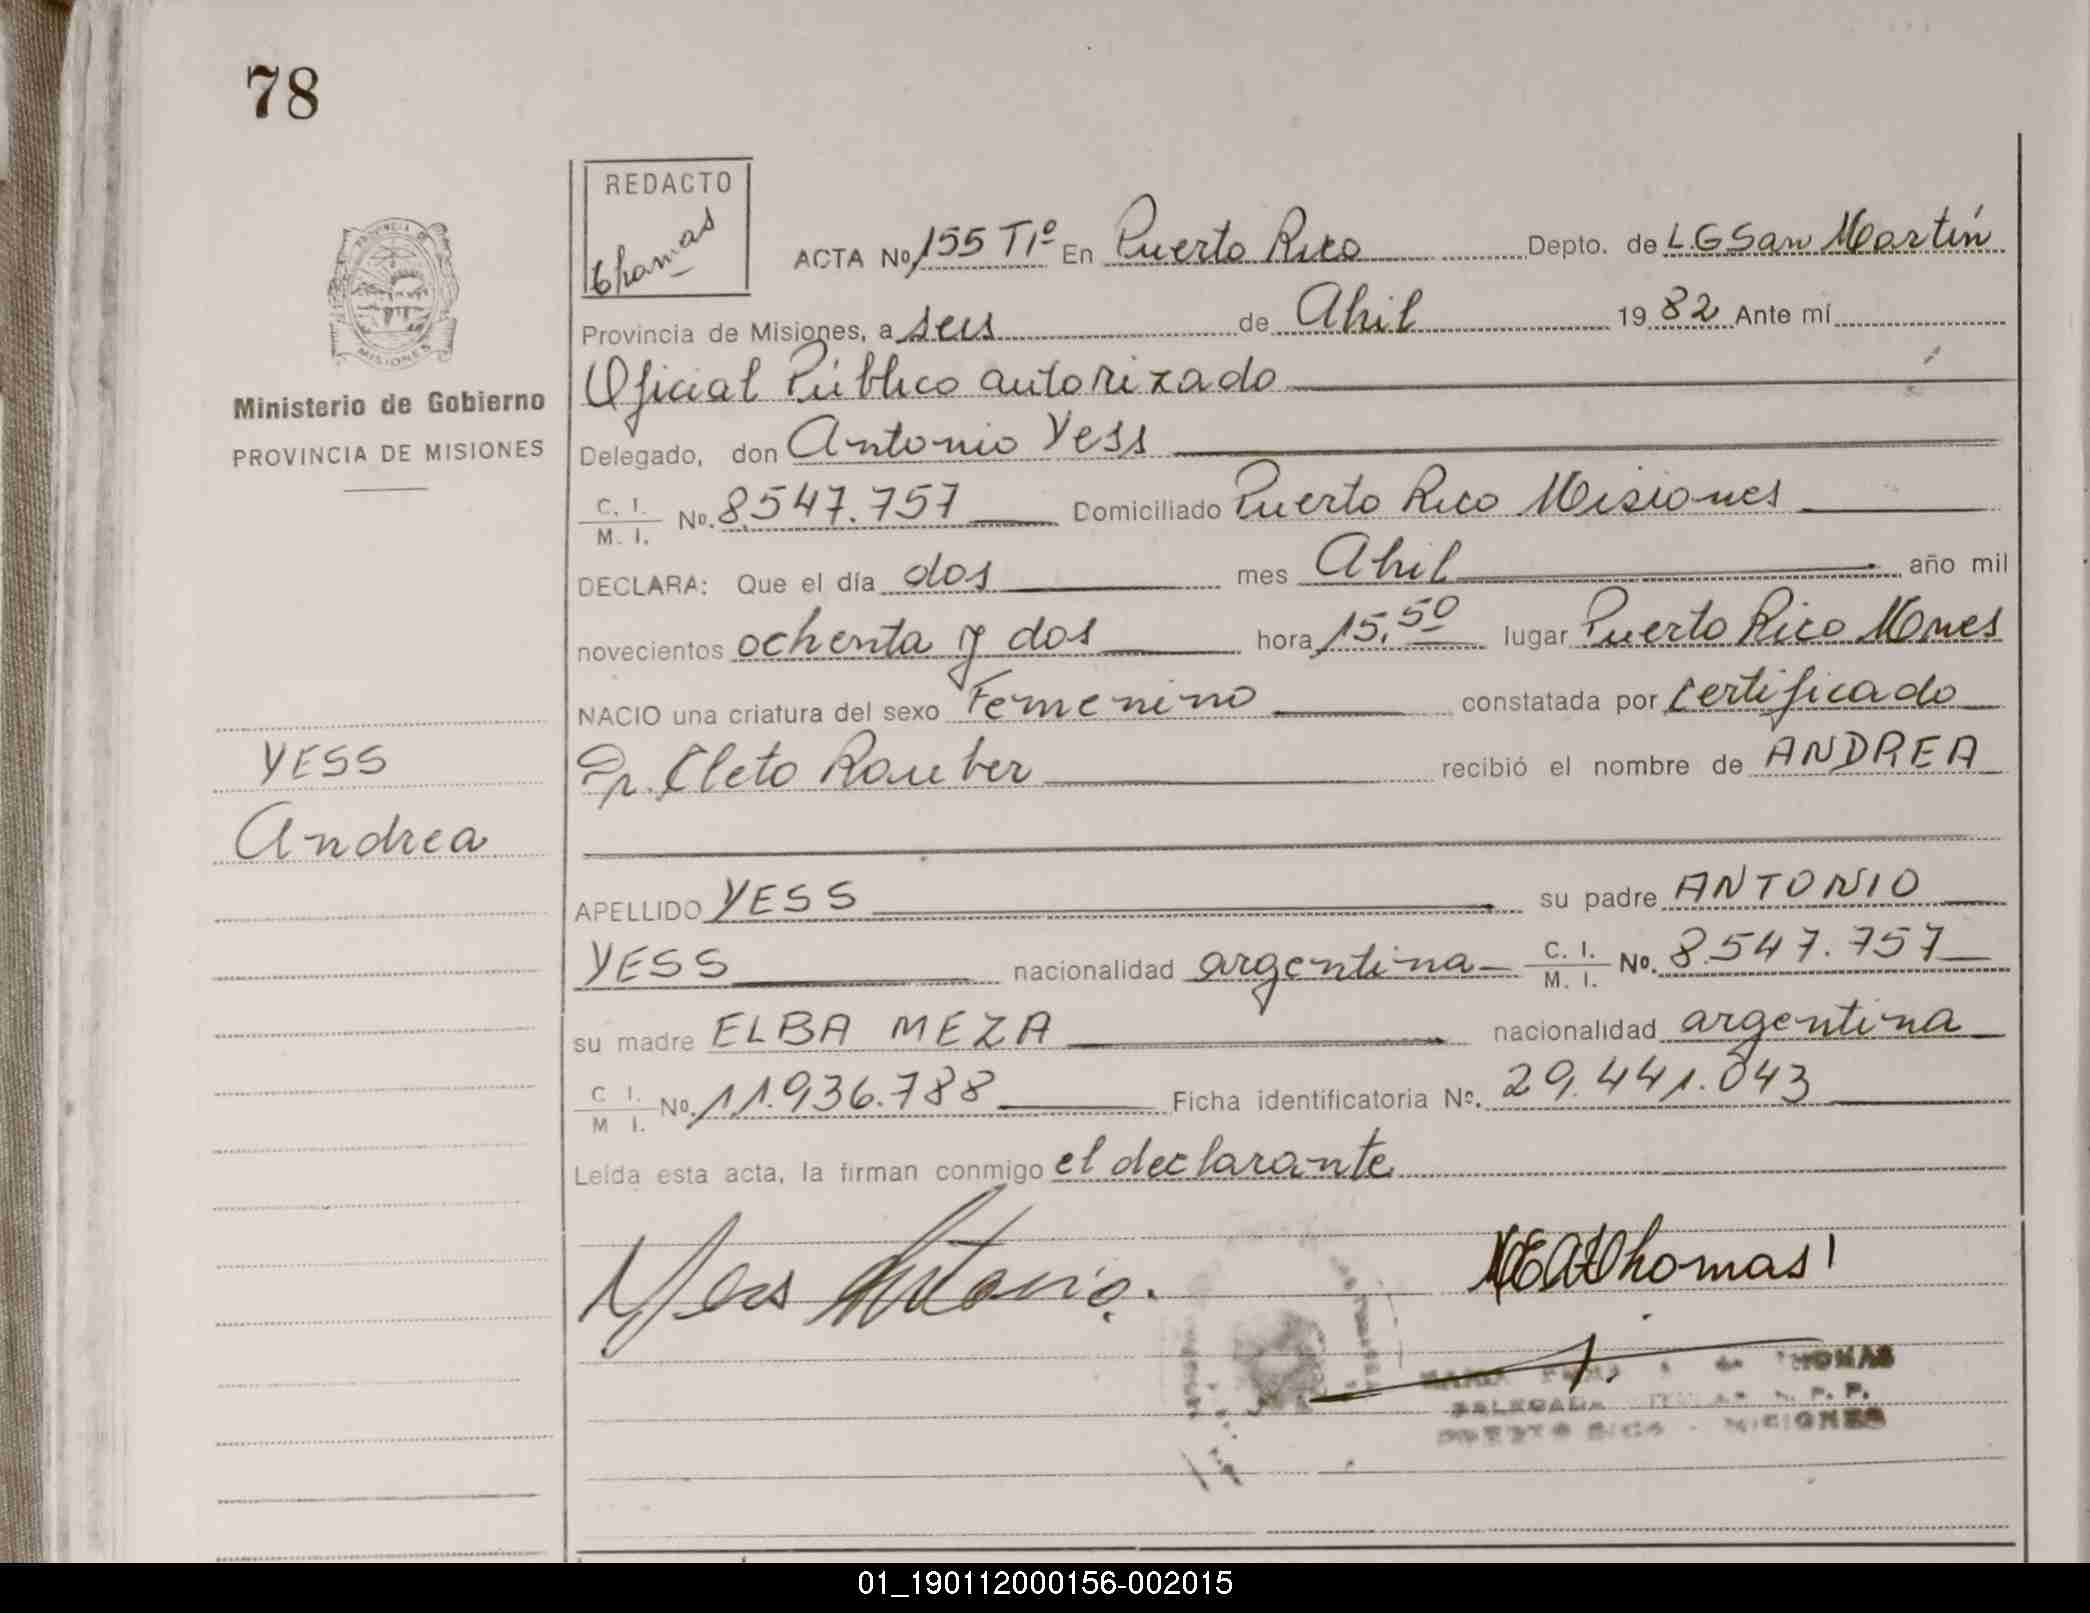 78
REDACTO
Thomas
ACTA No 155 T1º En Puerto Rico Depto. de L.G San Martín
Provincia de Misiones, a seis de Abril 1982 Ante mí
Oficial Público autorizado
Ministerio de Gobierno
PROVINCIA DE MISIONES
MISIONES
Delegado, don Antonio Yess
C. I. M. I. No. 8.547.757 Domiciliado Puerto Rico Misiones
DECLARA: Que el día dos mes Abril año mil
novecientos ochenta y dos hora 15,50 lugar Puerto Rico Mnes
NACIO una criatura del sexo Femenino constatada por Certificado
Dr. Cleto Rauber recibió el nombre de ANDREA
YESS
Andrea
APELLIDO YESS su padre ANTONIO
YESS nacionalidad argentina C. I. M. I. No. 8.547.757
su madre ELBA MEZA nacionalidad argentina
C I. M I. No. 11.936.788 Ficha identificatoria No. 29.441.043
Leída esta acta, la firman conmigo el declarante
Yess Antonio.
Thomas
THOMAS
R. P. P.
PUERTO RICO - MISIONES
01_190112000156-002015